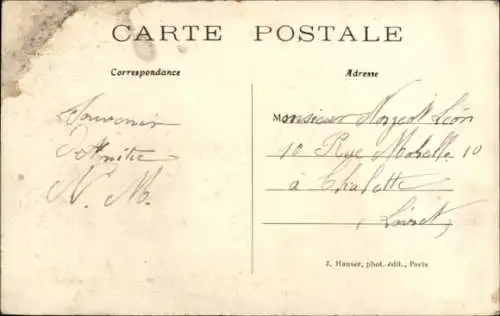 CARTE POSTALE
Correspondance
Adresse
Souvenir
d'Amitié
N. M.
Monsieur Léon
10 Rue 10
à Chalette
(Loiret)
J. Hauser, phot.-édit., Paris